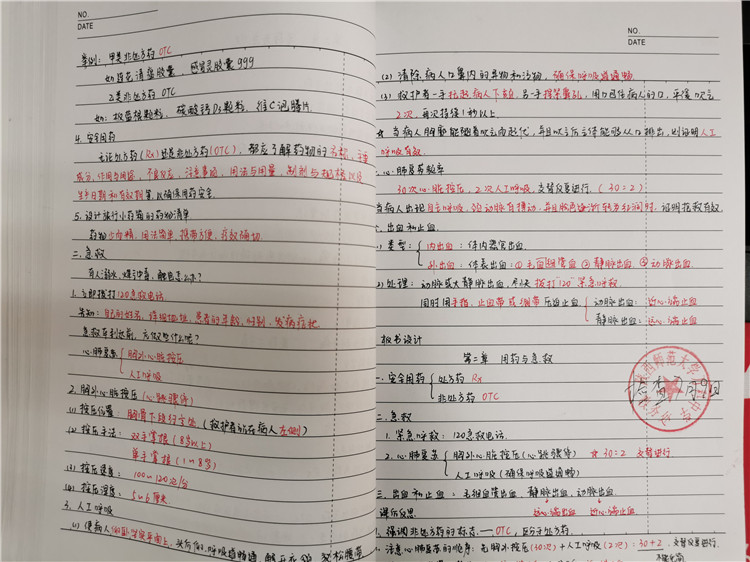 NO.
DATE
类别：甲类非处方药 OTC
如荷花清瘟胶囊，感冒灵胶囊999
乙类非处方药 OTC
如：板蓝根颗粒，碳酸钙D3颗粒，维C泡腾片
4. 安全用药
无论处方药(Rx)还是非处方药(OTC)，都应了解药物的名称，主要
成分，作用与用途，不良反应，注意事项，用法与用量，制剂与规格以及
生产日期和有效期等，以确保用药安全.
5. 设计旅行小药箱的药物清单
药物少而精，用法简单，携带方便，疗效确切.
二.急救
有人溺水，煤气中毒，触电怎么办？
1. 立即拨打120急救电话
告知：自己的姓名，详细地址，患者的年龄，性别，发病症状.
急救车到达前，应做些什么呢？
心肺复苏
胸外心脏按压
人工呼吸
2. 胸外心脏按压（心脏骤停）
(1) 按压位置：胸骨下段稍左处（救护者站在病人左侧）
(2) 按压手法：双手掌根（8岁以上）
单手掌根（1～8岁）
(3) 按压速度：100～120次/分
(4) 按压深度：5～6厘米
3. 人工呼吸
(1) 使病人仰卧坚实平面上，头后仰，呼吸道畅通，解开衣领，放松腰带
NO.
DATE
(2) 清除病人口鼻内的异物和污物，确保呼吸道通畅
(3) 救护者一手托起病人下颌，另一手捏紧鼻孔，用口包住病人的口，平缓吹气
2次，每次持续1秒以上.
★ 当病人胸廓能随着吹气而起伏，并且吹气后气体能够从口排出，则证明人工
呼吸有效.
心肺复苏频率
30次心脏按压，2次人工呼吸，交替反复进行.（30=2）
当病人出现自主呼吸，颈动脉有搏动，并且脸色逐渐转为红润时，证明抢救有效.
出血和止血
类型：
内出血：体内器官出血.
外出血：体表出血：① 毛细血管血 ② 静脉出血 ④ 动脉出血
2) 处理：动脉或大静脉出血，尽快拨打"120"急救呼救.
同时用手指，止血带或绷带压迫止血
动脉出血：近心端止血
静脉出血：远心端止血
板书设计
第二章 用药与急救
一.安全用药
处方药 Rx
非处方药 OTC
二.急救
1. 紧急呼救：120急救电话.
2. 心肺复苏
胸外心脏按压（心脏骤停） ☆ 30=2 交替进行.
人工呼吸（确保呼吸道通畅）
三.出血和止血：毛细血管出血，静脉出血，动脉出血.
远心端止血 近心端止血
课后反思
强调非处方药的标志——OTC，区分于处方药.
注意心肺复苏的顺序：先胸外按压(30次)+人工呼吸(2次)：30+2，交替反复进行.
西师范大学
已查 7月9日